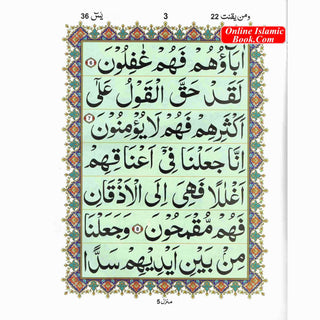 ومن يقنت 22
3
يٰسٓ 36
Online Islamic
Book.Com
اٰبَآؤُهُمْ فَهُمْ غٰفِلُوْنَ ۝
لَقَدْ حَقَّ الْقَوْلُ عَلٰٓى
اَكْثَرِهِمْ فَهُمْ لَا يُؤْمِنُوْنَ ۝
اِنَّا جَعَلْنَا فِيْٓ اَعْنَاقِهِمْ
اَغْلٰلًا فَهِيَ اِلَى الْاَذْقَانِ
فَهُمْ مُّقْمَحُوْنَ ۝ وَجَعَلْنَا
مِنْۢ بَيْنِ اَيْدِيْهِمْ سَدًّا
منزل 5